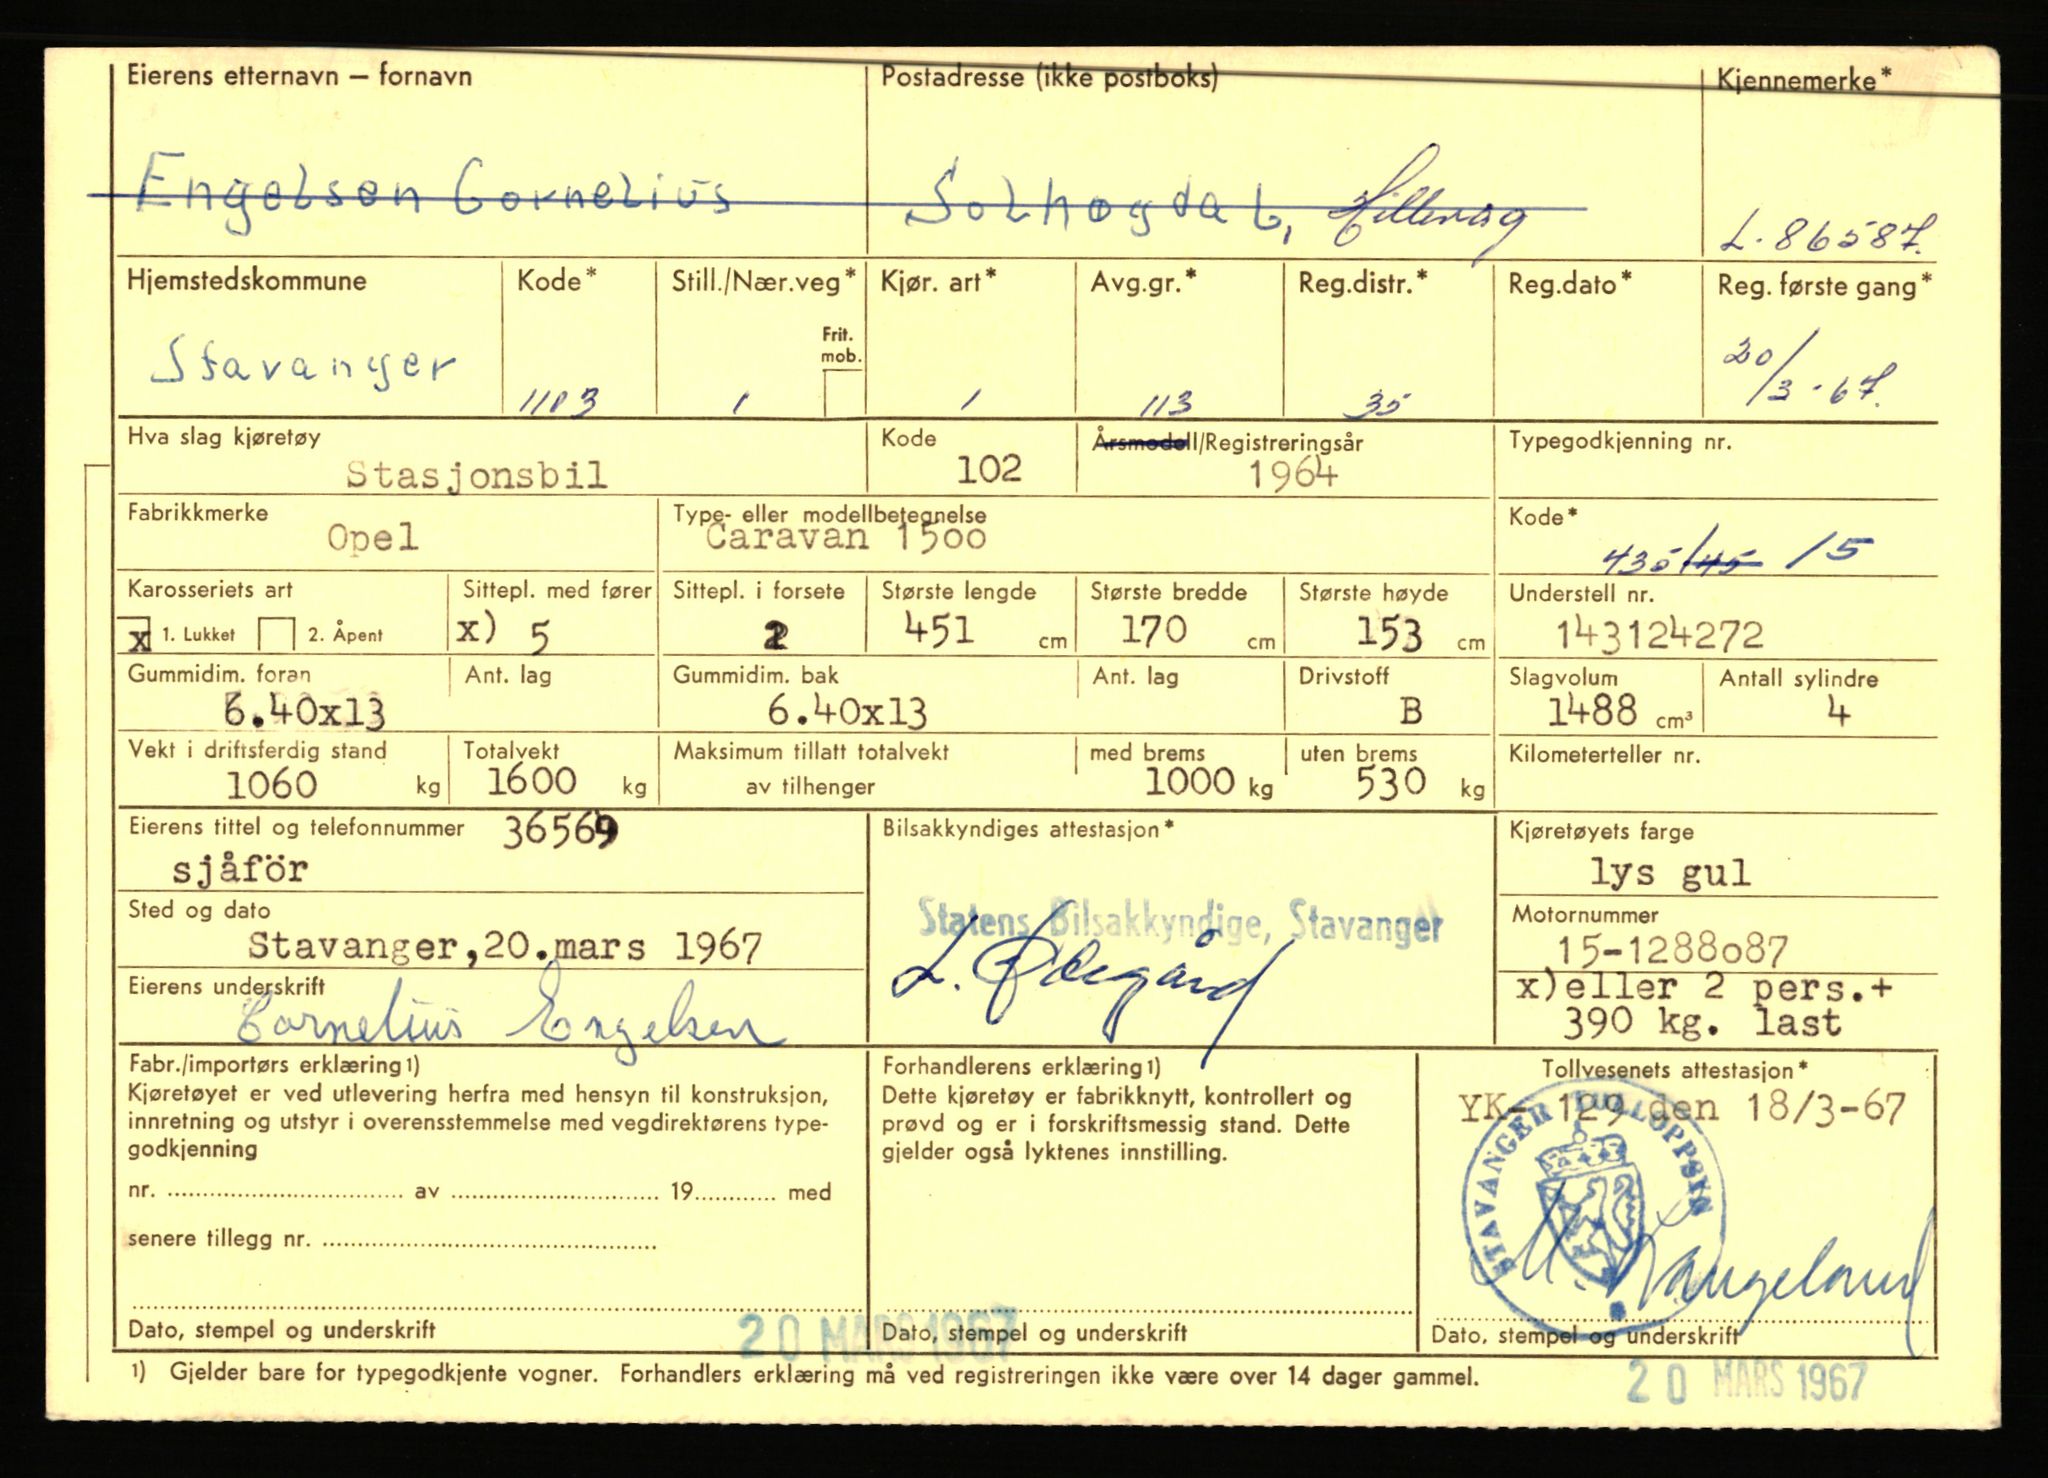 Eierens etternavn — fornavn
Engelsen Cornelius
Postadresse (ikke postboks)
Solhøgda 6, Hillevåg
Kjennemerke*
L-86587.
Hjemstedskommune
Stavanger
Kode*
1103
Still./Nær.veg*
Frit. mob.
1
Kjør. art*
1
Avg.gr.*
113
Reg.distr.*
35
Reg.dato*
Reg. første gang*
20/3-67.
Hva slag kjøretøy
Stasjonsbil
Kode
102
Årsmodell/Registreringsår
1964
Typegodkjenning nr.
Fabrikkmerke
Opel
Type- eller modellbetegnelse
Caravan 1500
Kode*
435/45 15
Karosseriets art
x 1. Lukket 2. Åpent
Sittepl. med fører
x) 5
Sittepl. i forsete
2
Største lengde
451 cm
Største bredde
170 cm
Største høyde
153 cm
Understell nr.
143124272
Gummidim. foran
6.40x13
Ant. lag
Gummidim. bak
6.40x13
Ant. lag
Drivstoff
B
Slagvolum
1488 cm³
Antall sylindre
4
Vekt i driftsferdig stand
1060 kg
Totalvekt
1600 kg
Maksimum tillatt totalvekt
av tilhenger
med brems
1000 kg
uten brems
530 kg
Kilometerteller nr.
Eierens tittel og telefonnummer 36569
sjåför
Bilsakkyndiges attestasjon*
Statens Bilsakkyndige, Stavanger
L. Ødegård
Kjøretøyets farge
lys gul
Sted og dato
Stavanger,20.mars 1967
Motornummer
15-1288087
Eierens underskrift
Cornelius Engelsen
x)eller 2 pers.+
390 kg. last
Fabr./importørs erklæring1)
Kjøretøyet er ved utlevering herfra med hensyn til konstruksjon,
innretning og utstyr i overensstemmelse med vegdirektørens type-
godkjenning
nr. .......... av .......... 19.......... med
senere tillegg nr. ..........
Dato, stempel og underskrift
20 MARS 1967
Forhandlerens erklæring1)
Dette kjøretøy er fabrikknytt, kontrollert og
prøvd og er i forskriftsmessig stand. Dette
gjelder også lyktenes innstilling.
Dato, stempel og underskrift
Tollvesenets attestasjon*
YK- 129 den 18/3-67
STAVANGER TOLLOPPSYN
Dato, stempel og underskrift
20 MARS 1967
1) Gjelder bare for typegodkjente vogner. Forhandlers erklæring må ved registreringen ikke være over 14 dager gammel.